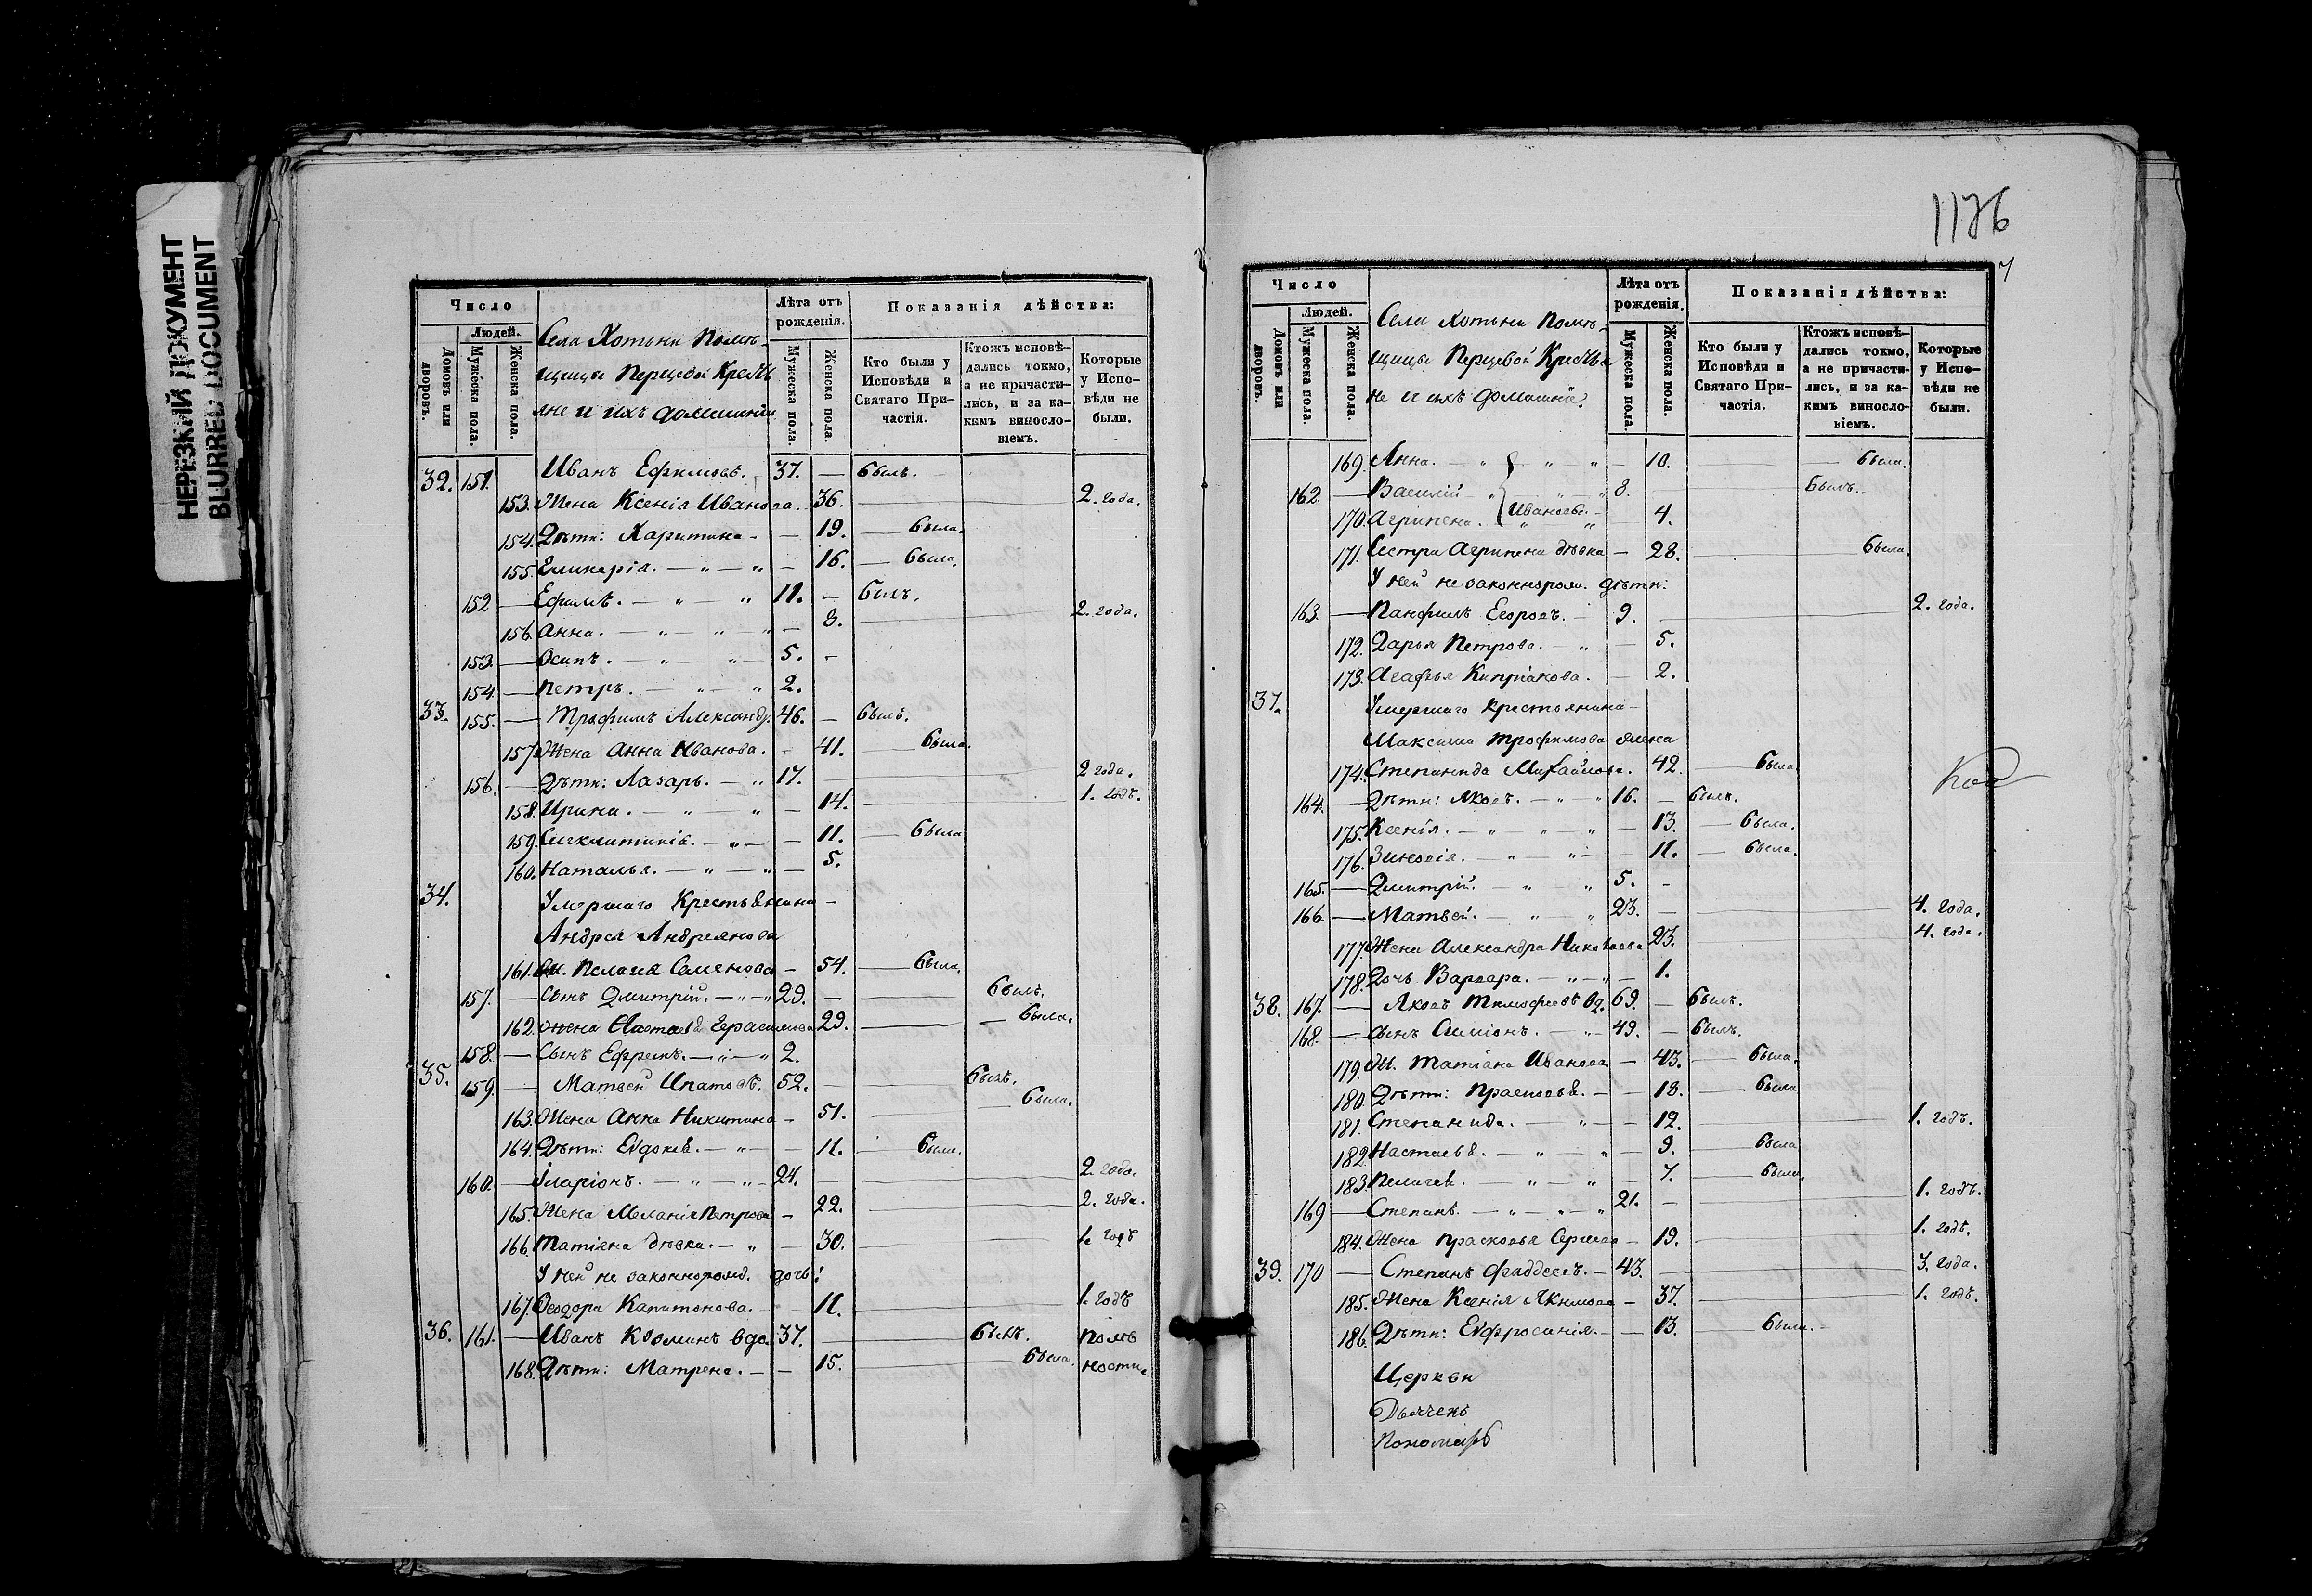 НЕРЕЗКИЙ ДОКУМЕНТ
BLURRED DOCUMENT
Число
Людей.
Домовъ или дворовъ.
Мужеска пола.
Женска пола.
Села Хотыни Помѣ-
щицы Перцевой Кресть
яне и ихъ домашніи
Лѣта отъ рожденія.
Мужеска пола.
Женска пола.
Показанія дѣйства:
Кто были у Исповѣди и Святаго При-частія.
Ктожъ исповѣ-дались токмо, а не причасти-лись, и за ка-кимъ винносло-віемъ.
Которые у Испо-вѣди не были.
32. 151. Иванъ Ефимовъ. 37. — былъ.
153. Жена Ксенія Иванова. 36. 2. года.
154. Дѣти: Харитина — 19. — была.
155. Гликерія. — „ — „ — 16. — была.
152 — Ефимъ. — „ — „ 11. — былъ.
156. Анна. — „ — „ — „ — 8. 2. года.
153. — Осипъ. — „ — „ — 5. —
154. — Петръ. — „ — „ 2.
33. 155. — Трофимъ Александр. 46. — былъ.
157. Жена Анна Иванова. — 41. — была.
156. — Дѣти: Лазарь. — „ 17. — 2 года.
158. Ирина. — „ — „ — 14. 1. годъ.
159. Синклитикія. — „ — — 11. — была
160. Наталья. — „ — „ — 5.
34. Умершаго Крестьянина —
Андрея Андреянова
161. ж. Пелагія Семенова — 54. — была.
157. — Сынъ Дмитрій. — „ — „ 29. — былъ.
162. жена Настасья Герасимова 29. — была.
158. — Сынъ Ефремъ. — „ — „ 2.
35. 159. — Матвей Ипатовъ. 52. — былъ.
163. Жена Анна Никитина — 51. — была.
164. Дѣти: Евдокія. — „ — — 11. — была.
160. — Иларіонъ. — „ — „ — 24. — 2. года.
165. Жена Меланія Петрова — 22. 2. года.
166. Татіяна дѣвка. — „ — 30. 1. годъ
У ней не законнорожд. дочь:
167. Ѳеодора Капитонова. — 11. 1. годъ
36. 161. — Иванъ Козминъ вдо. 37. — былъ.
168. Дѣти: Матрена. — — 15. — была.
1176
7
Число
Людей.
Домовъ или дворовъ.
Мужеска пола.
Женска пола.
Села Хотыни Помѣ-
щицы Перцевой Крестья
не и ихъ домашніе.
Лѣта отъ рожденія.
Мужеска пола.
Женска пола.
Показанія дѣйства:
Кто были у Исповѣди и Святаго При-частія.
Ктожъ исповѣ-дались токмо, а не причасти-лись, и за ка-кимъ винносло-віемъ.
Которые у Испо-вѣди не были.
169. Анна. — „ — „ „ — 10. — была.
162. — Василій — „ — „ 8. — былъ.
170. Агрипена. „ Ивановы. — 4.
171. Сестра Агрипена дѣвка — 28. — была.
У ней не законнорож. дѣти:
163. — Панфилъ Егоровъ. — 9. — 2. года.
172. Дарья Петрова. — „ — 5.
173. Агафья Кипріанова. — 2.
37. Умершаго крестьянина —
Максима Трофимова жена
174. Степанида Михайлова. 42. — была.
164. — Дѣти: Яковъ. — „ — „ 16. — былъ.
175. Ксенія. — „ — „ — „ — 13. — была.
176. Зиновія. — „ — „ — 11. — была.
165. — Дмитрій. — „ — „ 5. —
166. — Матвей. — „ — „ 23. — 4. года.
177. Жена Александра Николаева 23. 4. года.
178. Дочь Варвара. — „ — „ — 1.
38. 167. — Яковъ Тимофеевъ вд. 69. — былъ.
168. — сынъ Симіонъ. — „ — 49. — былъ.
179. Ж. Татіана Иванова — 43. — была.
180. Дѣти: Прасковья. — — 18. — была
181. Степанида. — „ — — 12. 1. годъ.
182. Настасья. — „ — „ — 9. — была
183. Пелагея. — „ — „ — 7. — была.
169 — Степанъ. — „ — „ — „ 21. — 1. годъ.
184. Жена Прасковья — 19. 1. годъ.
39. 170 — Степанъ Фаддеевъ. — 43. — 3. года.
185. Жена Ксенія Якимова — 37. 1. годъ.
186. Дѣти: Евфросинія. — — 13. — была. —
Церкви
Дьячекъ
Пономарь